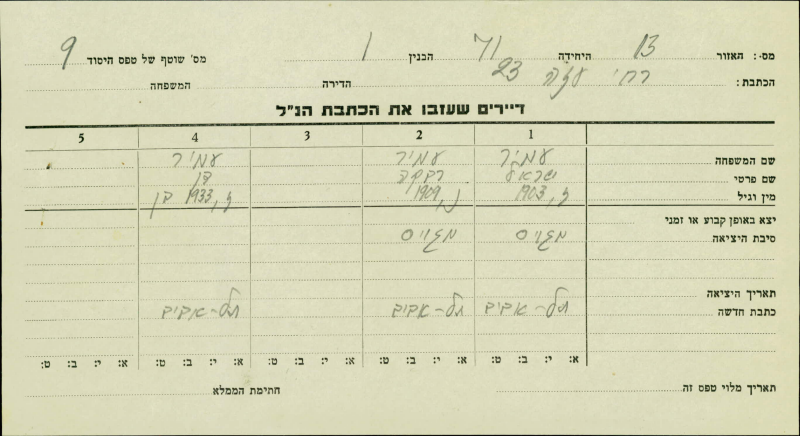 מס׳: האזור 13 היחידה 71 הבנין 1 מס׳ שוטף של טפס היסוד 9
הכתבת: רח׳ עזה 23 הדירה המשפחה
דיירים שעזבו את הכתבת הנ״ל
1 2 3 4 5
שם המשפחה עמיר עמיר עמיר
שם פרטי ישראל רבקה דן
מין וגיל ז, 1903 נ, 1909 ז, 1933 בן
יצא באופן קבוע או זמני
סיבת היציאה מגויס מגויס
תאריך היציאה
כתבת חדשה תל-אביב תל-אביב תל-אביב
א: י: ב: ט: א: י: ב: ט: א: י: ב: ט: א: י: ב: ט: א: י: ב: ט:
תאריך מלוי טפס זה חתימת הממלא